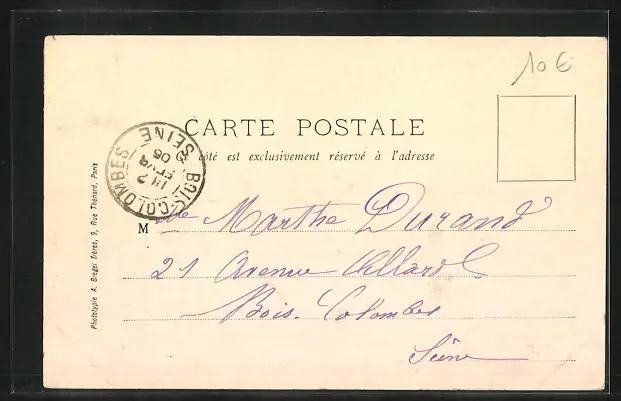 10 €
CARTE POSTALE
Ce côté est exclusivement réservé à l'adresse
BOIS-COLOMBES
SEINE
M lle Marthe Durand
21 Avenue Allard
Bois. Colombes
Seine
Phototypie A. Breger frères, 9, Rue Thénard, Paris